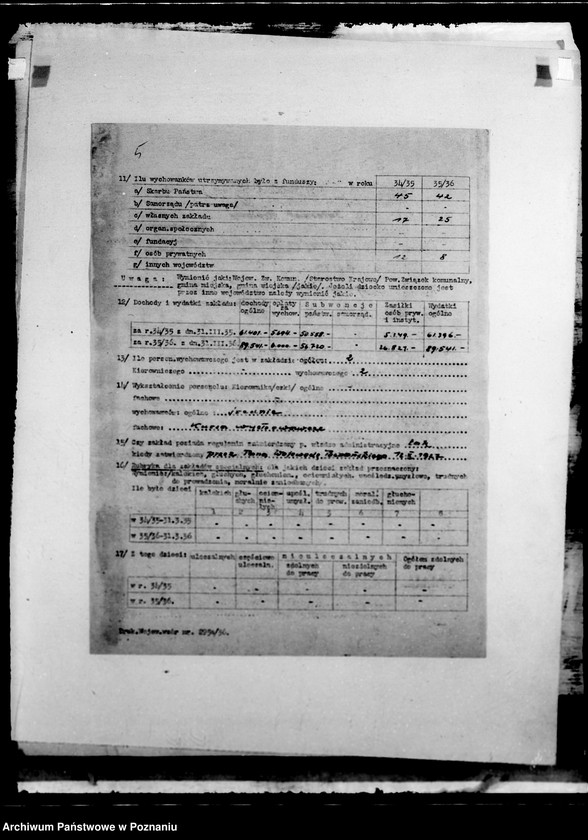 5
11/ Ilu wychowanków utrzymywanych było z funduszy: w roku 34/35 35/36
a/ Skarbu Państwa 45 42
b/ Samorządu /patrz uwaga/ - -
c/ własnych zakładu 17 25
d/ organ.społecznych - -
e/ fundacyj - -
f/ osób prywatnych 12 8
g/ innych województw
Uwaga: Wymienić jaki:Wojew. Zw. Komun. /Starostwo Krajowe/ Pow.Związek komunalny,
gmina miejska, gmina wiejska /jakie/. Jeżeli dziecko umieszczone jest
przez inne województwo należy wymienić jakie.
12/ Dochody i wydatki zakładu: dochody ogólne opłaty za wychow. Subwencje państw. samorząd. Zasiłki osób pryw. i instyt. Wydatki ogólne
za r.34/35 z dn.31.III.35. 61.401.- 50.558.- - 61.396.-
za r.35/36. z dn.31.III.36. 89.541.- 6.000.- 56.720.- - 26.821.- 89.541.-
13/ Ile person.wychowawczego jest w zakładzie: ogółem: 2
Kierowniczego - wychowawczego 2
14/ Wykształcenie personelu: Kierownika/czki/ ogólne -
fachowe -
wychowawców: ogólne : średnie
fachowe: Kursa wychowawcze
15/ Czy zakład posiada regulamin zatwierdzony p. władze administracyjne tak
kiedy zatwierdzony przez Pana Wojewodę Poznańskiego
16/ Rubryka dla zakładów specjalnych: dla jakich dzieci zakład przeznaczony:
wymienić/kalekich, głuchych, głuchoniem., ociemniałych, upośledz.umysłowo, trudnych
do prowadzenia, moralnie zaniedbanych/.
Ile było dzieci kalekich głuchych ociemniałych upośl. umysł. trudnych do prow. moral. zaniedb. głuchoniemych
1 2 3 4 5 6 7 8
w 34/35-31.3.35 - - - - - - - -
w 35/36-31.3.36 - - - - - - - -
17/ Z tego dzieci: uleczalnych częściowo uleczaln. nieuleczalnych zdolnych do pracy niezdolnych do pracy Ogółem zdolnych do pracy
w r. 34/35 - - - - -
w r. 35/36. - - - - -
Druk.Wojew.wzór nr. 2954/36.
Archiwum Państwowe w Poznaniu